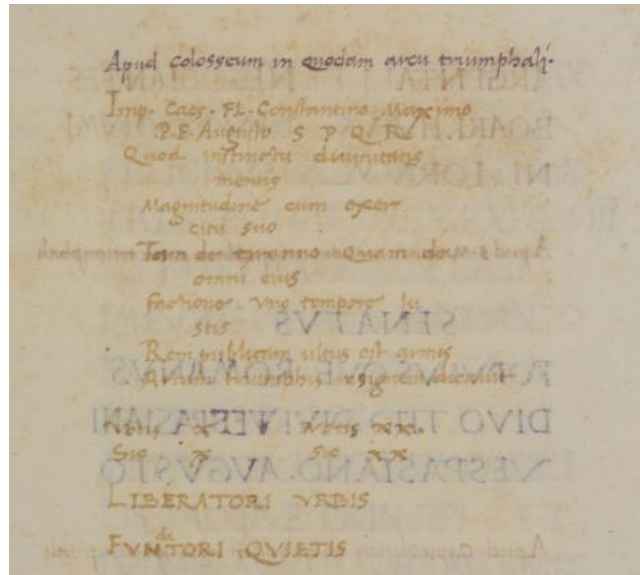 Apud colosseum in quodam arcu triumphali.
Imp. Caes. FL. Constantino Maximo
P. F. Augusto S P Q R
Quod instinctu divinitatis
mentis
Magnitudine cum exer
citu suo
Tam de tyranno quam de
omni eius
factione uno tempore iu
stis
Rem publicam ultus est armis
Arcum triumphis
Votis X Votis XX.
Sic X Sic XX
LIBERATORI VRBIS
de
FVNTORI QVIETIS